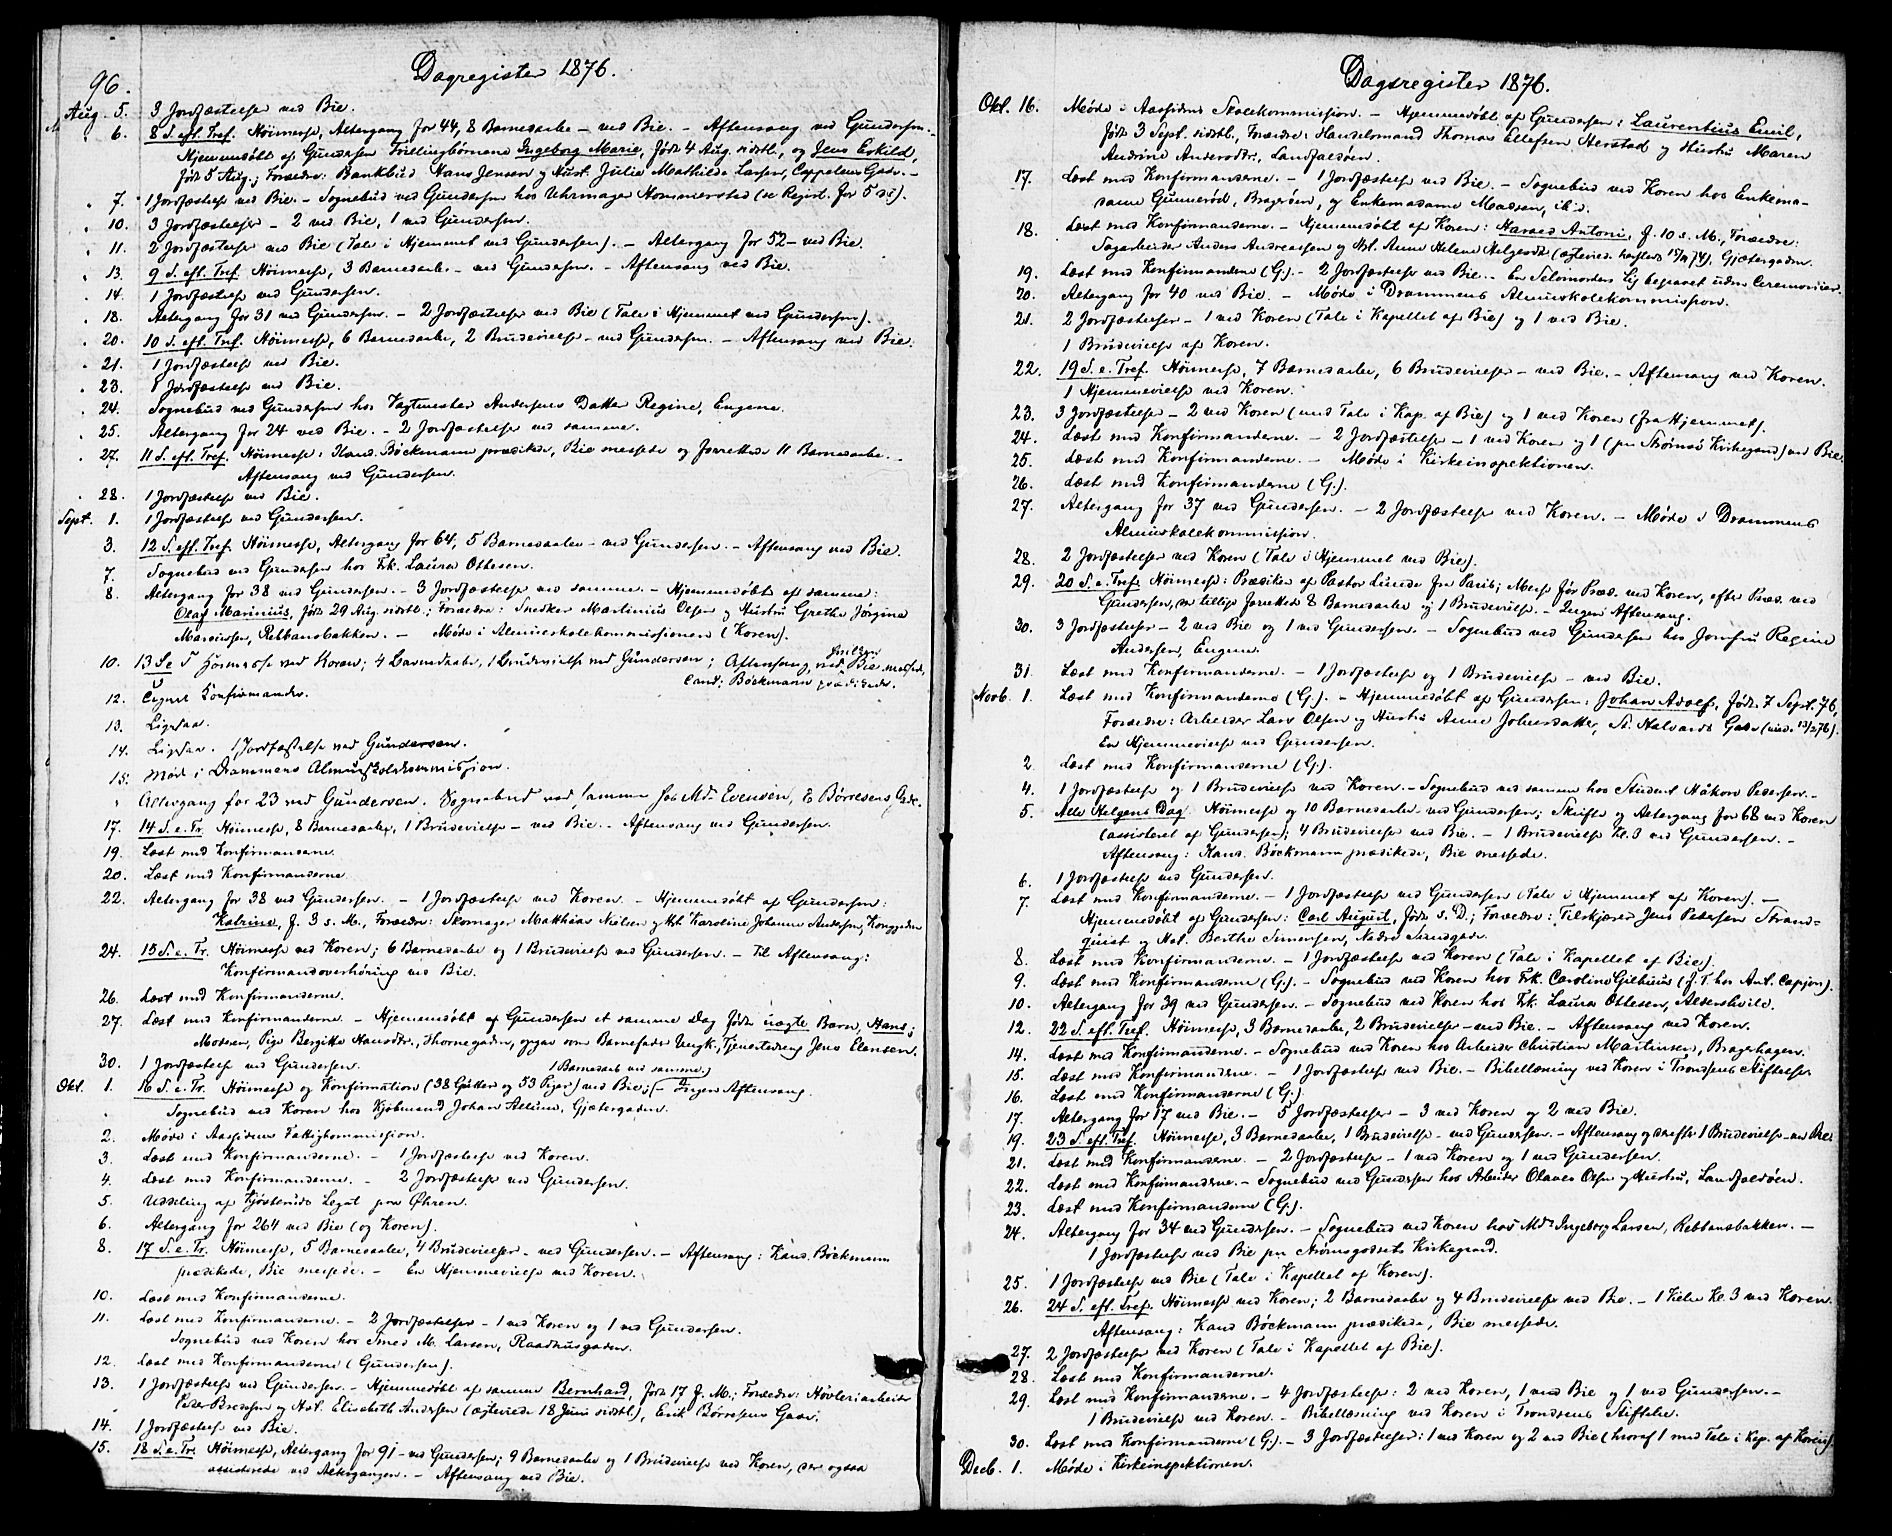 96.
Dagregister 1876.
Aug. 5. 3 Jordfæstelser ved Bie.
6. 8 S. eft. Tref. Høimesse, Altergang for 44, 8 Barnedaabe – ved Bie. – Aftensang ved Gundersen. –
Hjemmedøbt af Gundersen Tvillingbørnene Ingeborg Marie, født 4 Aug. sidstl., og Jens Eskild,
født 5 Aug.; Forældre: Bankbud Hans Jensen og Hust. Julie Mathilde Larsen, Cappelens Gade. –
7. 1 Jordfæstelse ved Bie. – Sognebud ved Gundersen hos Uhrmager Hommersted (se Regist. for 5 ds.).
10. 3 Jordfæstelser – 2 ved Bie, 1 ved Gundersen.
11. 2 Jordfæstelser ved Bie (Tale i Hjemmet ved Gundersen). – Altergang for 52 – ved Bie.
13. 9 S. eft. Tref. Høimesse, 3 Barnedaabe. – ved Gundersen. – Aftensang ved Bie.
14. 1 Jordfæstelse ved Gundersen.
18. Altergang for 31 ved Gundersen. – 2 Jordfæstelser ved Bie (Tale i Hjemmet ved Gundersen).
20. 10 S. eft. Tref. Høimesse, 6 Barnedaabe, 2 Brudevielser – ved Gundersen. – Aftensang ved Bie.
21. 1 Jordfæstelse ved Bie.
23. 1 Jordfæstelse ved Bie.
24. Sognebud ved Gundersen hos Vagtmester Andersens Datter Regine, Engene.
25. Altergang for 24 ved Bie. – 2 Jordfæstelser ved samme.
27. 11 S. eft. Tref. Høimesse: Kand. Böckmann prædikede, Bie messede og forrettede 11 Barnedaabe. –
Aftensang ved Gundersen.
28. 1 Jordfæstelse ved Bie.
Sept. 1. 1 Jordfæstelse ved Gundersen.
3. 12 S. eft. Tref. Høimesse, Altergang for 64, 5 Barnedaabe – ved Gundersen. – Aftensang ved Bie.
7. Sognebud ved Gundersen hos Frk. Laura Ottesen.
8. Altergang for 38 ved Gundersen. – 3 Jordfæstelser ved samme. – Hjemmedøbt af samme:
Olaf Marinius, født 29 Aug. sidstl.; Forældre: Snedker Martinius Olsen og Hustru Grethe Jørgine
Marcussen, Rebbansbakken. – Møde i Almueskolekommissionen (Koren).
10. 13 S e T Høimesse ved Koren; 4 Barnedaabe, 1 Brudevielse ved Gundersen; Aftensang, ved Bie messede,
Cand. Böckmann prædikede.
12. Tegnet Konfirmander.
13. Ligesaa.
14. Ligesaa. 1 Jordfæstelse ved Gundersen.
15. Møde i Drammens Almueskolekommission.
Altergang for 23 ved Gundersen. Sognebud ved samme hos Md. Evensen, E Børresens Gade.
17. 14 S. e. Tr. Høimesse, 8 Barnedaabe, 1 Brudevielse – ved Bie. – Aftensang ved Gundersen.
19. Læst med Konfirmanderne.
20. Læst med Konfirmanderne.
22. Altergang for 38 ved Gundersen. – 1 Jordfæstelse ved Koren. – Hjemmedøbt af Gundersen:
Katrine, f. 3 s. M., Forældre: Skomager Matthias Nielsen og Hst. Karoline Johanne Andersen, Konggaden
24. 15 S. e. Tr. Høimesse ved Koren; 6 Barnedaabe og 1 Brudevielse ved Gundersen. – Til Aftensang:
Konfirmandoverhøring ved Bie.
26. Læst med Konfirmanderne.
27. Læst med Konfirmanderne. – Hjemmedøbt af Gundersen et samme Dag født uægte Barn, Hans;
Moderen, Pige Bergitte Hansdtr., Thornegaden, opgav som Barnefader Ungk., Tjenestedreng Jens Elensen.
30. 1 Jordfæstelse ved Gundersen.
1 Barnedaab ved samme.
Okt. 1. 16 S. e. Tr. Høimesse og Konfirmation (38 Gutter og 53 Piger) ved Bie; – Ingen Aftensang.
Sognebud ved Koren hos Kjøbmand Johan Allum, Gjætergaden.
2. Møde i Aassidens Fattigkommission.
3. Læst med Konfirmanderne. – 1 Jordfæstelse ved Koren.
4. Læst med Konfirmanderne. – 2 Jordfæstelser ved Gundersen.
5. Uddeling af Kjøsteruds Legat paa Øhren.
6. Altergang for 264 ved Bie (og Koren).
8. 17 S. e. Tr. Høimesse, 5 Barnedaabe, 4 Brudevielser – ved Gundersen. – Aftensang: Kand. Böckmann
prædikede, Bie messede. – En Hjemmevielse ved Koren.
10. Læst med Konfirmanderne.
11. Læst med Konfirmanderne. – 2 Jordfæstelser – 1 ved Koren og 1 ved Gundersen.
Sognebud ved Koren hos Smed M. Larsen, Raadhusgaden.
12. Læst med Konfirmanderne (Gundersen).
13. 1 Jordfæstelse ved Gundersen. – Hjemmedøbt af samme Bernhard, født 17 f. M.; Forældre: Høvleriarbeider
Peder Bredesen og Hst. Elisabeth Andersen (ægteviede 18 Juni sidstl), Erik Børresens Gade.
14. 1 Jordfæstelse ved Bie.
15. 18 S. e. Tr. Høimesse, Altergang for 91 – ved Gundersen; 9 Barnedaabe og 1 Brudevielse ved Koren, der ogsaa
assisterede ved Altergangen. – Aftensang ved Bie.
Dagsregister 1876.
Okt. 16. Møde i Aassidens Skolekommission. – Hjemmedøbt af Gundersen: Laurentius Emil,
født 3 Sept. sidstl., Forældre: Handelsmand Thomas Ellefsen Herstad og Hustru Maren
Andrine Andersdtr., Landfaldøen.
17. Læst med Konfirmanderne. – 1 Jordfæstelse ved Bie. – Sognebud ved Koren hos Enkema-
dame Gunnerød, Bragerøen, og Enkemadame Madsen, ibid.
18. Læst med Konfirmanderne. – Hjemmedøbt af Koren: Harald Antoni, f. 10 s. M., Forældre:
Sagarbeider Anders Andreassen og Hst. Anne Helene Helgesdt. (ægtevied. herfsteds 74), Gjætergaden.
19. Læst med Konfirmanderne (G.). – 2 Jordfæstelser ved Bie. – En Selvmorders Lig begravet uden Ceremonier.
20. Altergang for 40 ved Bie. – Møde i Drammens Almueskolekommission.
21. 2 Jordfæstelser – 1 ved Koren (Tale i Kapellet af Bie) og 1 ved Bie.
1 Brudevielse af Koren.
22. 19 S. e. Tref. Høimesse, 7 Barnedaabe, 6 Brudevielser – ved Bie. – Aftensang ved Koren.
1 Hjemmevielse ved Koren.
23. 3 Jordfæstelser – 2 ved Koren (med Tale i Kap. af Bie) og 1 ved Koren (fra Hjemmet).
24. Læst med Konfirmanderne. – 2 Jordfæstelser – 1 ved Koren og 1 (paa Strømsø Kirkegaard) ved Bie.
25. Læst med Konfirmanderne. – Møde i Kirkeinspektionen.
26. Læst med Konfirmanderne (G.).
27. Altergang for 37 ved Gundersen. – 2 Jordfæstelser ved Koren. – Møde i Drammens
Almueskolekommission.
28. 2 Jordfæstelser ved Koren (Tale i Hjemmet ved Bie).
29. 20 S. e. Tref. Høimesse: Prædiken af Pastor Lunde fra Paris; Messe før Præd. ved Koren, efter Præd. ved
Gundersen, der tillige forrettede 8 Barnedaabe og 1 Brudevielse. – Ingen Aftensang.
30. 3 Jordfæstelser – 2 ved Bie og 1 ved Gundersen. – Sognebud ved Gundersen hos Jomfru Regine
Andersen, Engene.
31. Læst med Konfirmanderne. – 1 Jordfæstelse og 1 Brudevielse – ved Bie.
Novb. 1. Læst med Konfirmanderne (G.). – Hjemmedøbt af Gundersen: Johan Adolf, født 7 Sept. 76,
Forældre: Arbeider Lars Olsen og Hustru Anne Johnsdatter, St. Halvards Gade (viede 13/2 76).
En Hjemmevielse ved Gundersen.
2. Læst med Konfirmanderne (G.).
4. 1 Jordfæstelse og 1 Brudevielse ved Koren. – Sognebud ved samme hos Student Håkon Pedersen. –
5. Alle Helgens Dag. Høimesse og 10 Barnedaabe – ved Gundersen; Skrifte og Altergang for 68 ved Koren
(assisteret af Gundersen); 4 Brudevielser ved Bie. – 1 Brudevielse Kl. 3 ved Gundersen. –
Aftensang: Kand. Böckmann prædikede, Bie messede.
6. 1 Jordfæstelse ved Gundersen.
7. Læst med Konfirmanderne. – 1 Jordfæstelse ved Gundersen (Tale i Hjemmet af Koren). –
Hjemmedøbt af Gundersen: Carl August, født s. D.; Forældre: Tilskjærer Jens Pedersen Strand-
quist og Hst. Berthe Simensen, Nedre Sundgade.
8. Læst med Konfirmanderne. – 1 Jordfæstelse ved Koren (Tale i Kapellet af Bie).
9. Læst med Konfirmanderne (G.). – Sognebud ved Koren hos Frk. Caroline Gjelhuus (f. T. hos Ant. Capjon).
10. Altergang for 39 ved Gundersen. – Sognebud ved Koren hos Frk. Laura Ottesen, Aldershvile.
12. 22 S. eft. Tref. Høimesse, 3 Barnedaabe, 2 Brudevielser – ved Bie. – Aftensang ved Koren.
14. Læst med Konfirmanderne. – Sognebud ved Koren hos Arbeider Christian Martinsen, Bragerhagen.
15. Læst med Konfirmanderne. – 1 Jordfæstelse ved Bie. – Bibellæsning ved Koren i Trondsens Stiftelse.
16. Læst med Konfirmanderne (G.)
17. Altergang for 17 ved Bie. – 5 Jordfæstelser – 3 ved Koren og 2 ved Bie.
19. 23 S. eft. Tref. Høimesse, 3 Barnedaabe, 1 Brudevielse – ved Gundersen. – Aftensang og derefter 1 Brudevielse – ved Bie.
21. Læst med Konfirmanderne. – 2 Jordfæstelser – 1 ved Koren og 1 ved Gundersen.
22. Læst med Konfirmanderne. – Sognebud ved Gundersen hos Arbeider Olaves Olsen og Hustru, Landfaldøen.
23. Læst med Konfirmanderne (G.).
24. Altergang for 34 ved Gundersen. – Sognebud ved Koren hos Md. Ingeborg Larsen, Rebbansbakken. –
1 Jordfæstelse ved Bie paa Strømsgodsets Kirkegaard.
25. 1 Jordfæstelse ved Bie (Tale i Kapellet af Koren).
26. 24 S. eft. Tref. Høimesse ved Koren; 2 Barnedaabe og 4 Brudevielser ved Bie. – 1 Vielse Kl. 3 ved Koren.
Aftensang: Kand Böckmann prædikede, Bie messede.
27. 2 Jordfæstelser ved Koren (Tale i Kapellet af Bie).
28. Læst med Konfirmanderne.
29. Læst med Konfirmanderne. – 4 Jordfæstelser: 2 ved Koren, 1 ved Bie og 1 ved Gundersen. –
1 Brudevielse ved Koren. – Bibellæsning ved Koren i Trondsens Stiftelse.
30. Læst med Konfirmanderne (G.). – 3 Jordfæstelser: 1 ved Koren og 2 ved Bie (hvoraf 1 med Tale i Kap. af Koren).
Decb. 1. Møde i Kirkeinspektionen.